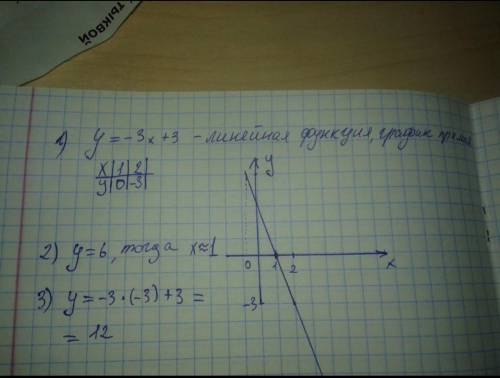 тыквой
1) y = -3x + 3 - линейная функция, график прямая
x | 1 | 2 |
y | 0 | -3 |
y
0 1 2 x
-3
2) y = 6, тогда x ≈ 1
3) y = -3 · (-3) + 3 =
= 12